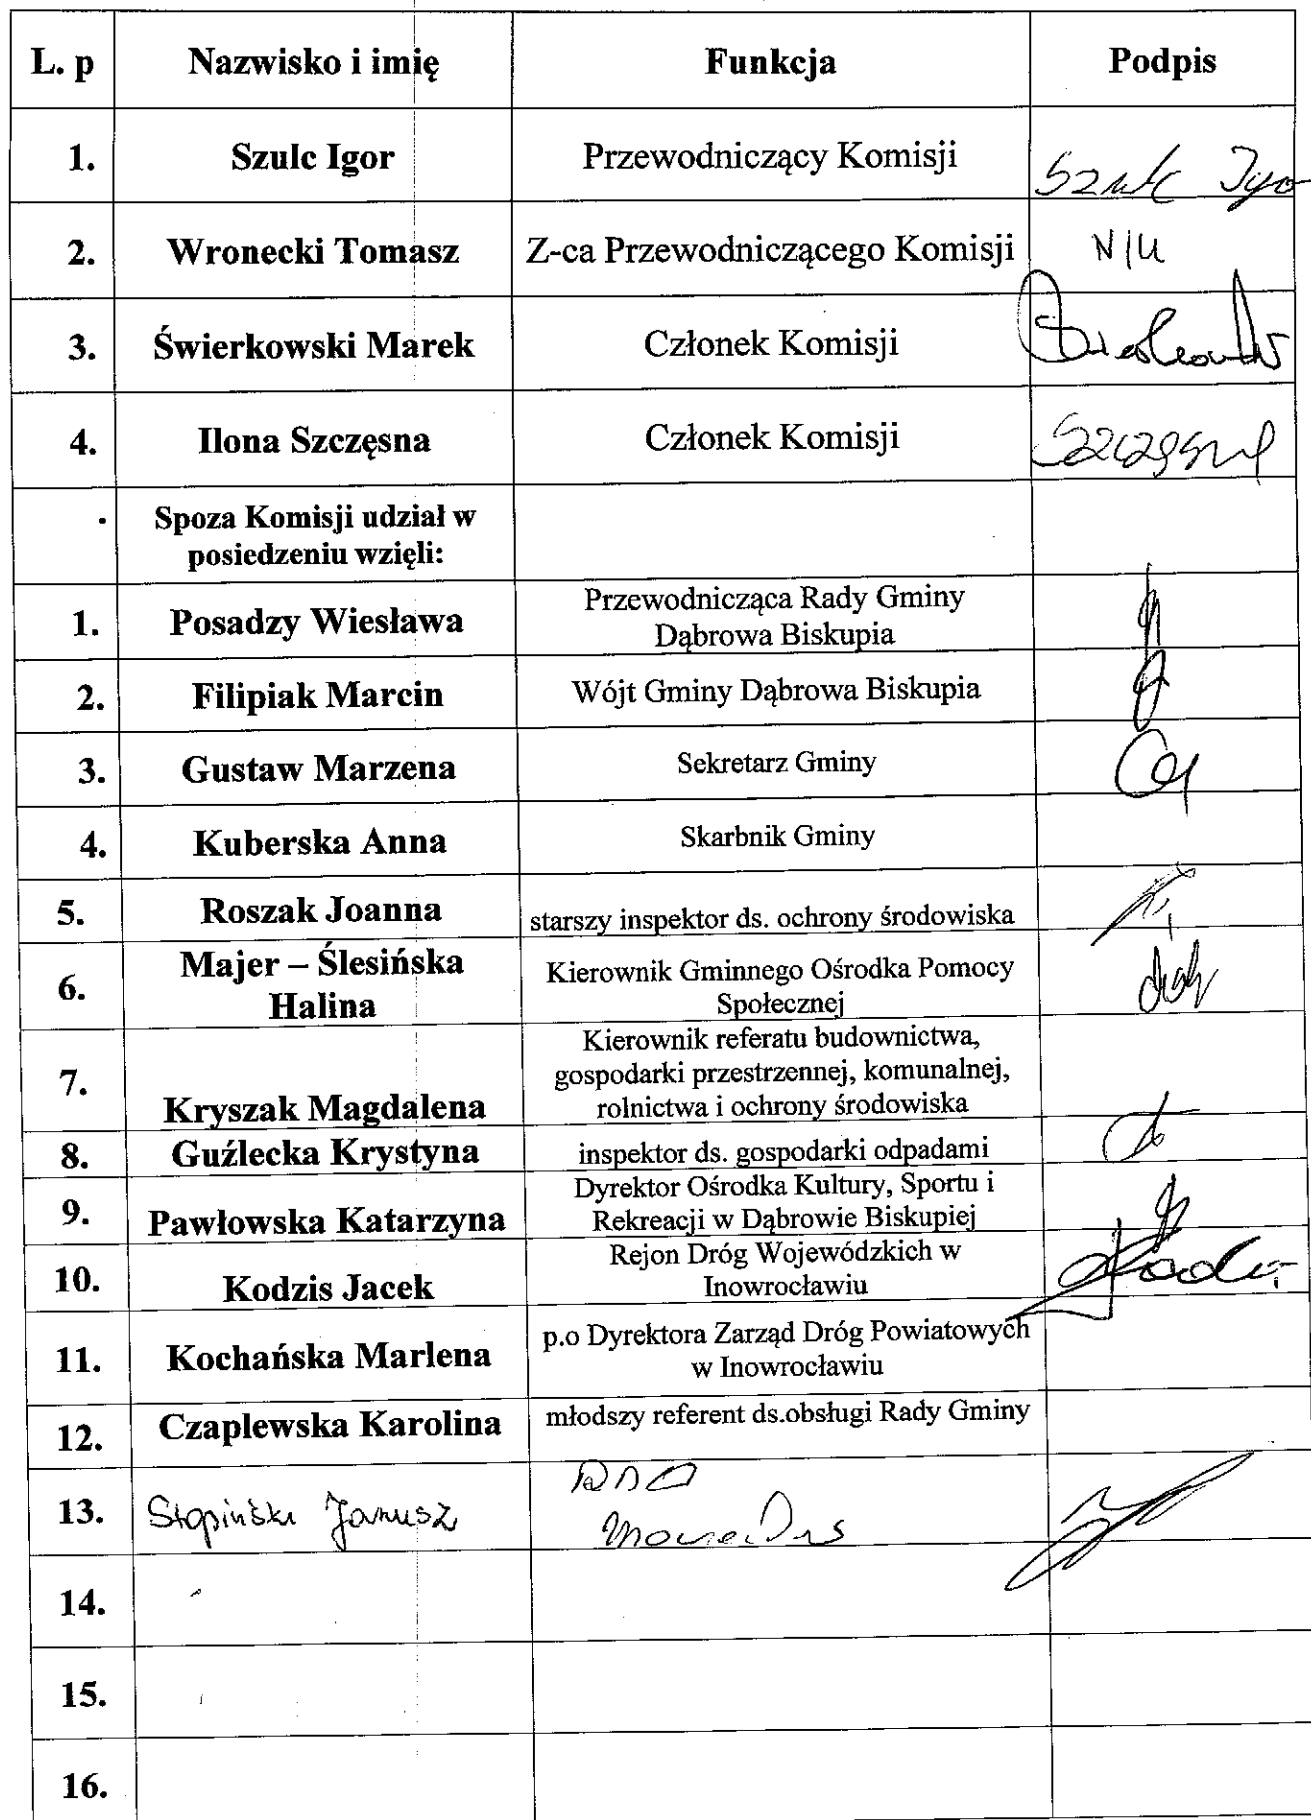 L. p Nazwisko i imię Funkcja Podpis
1. Szulc Igor Przewodniczący Komisji Szulc Igo
2. Wronecki Tomasz Z-ca Przewodniczącego Komisji N/U
3. Świerkowski Marek Członek Komisji
4. Ilona Szczęsna Członek Komisji Szczęsna
Spoza Komisji udział w
posiedzeniu wzięli:
Przewodnicząca Rady Gminy
1. Posadzy Wiesława
Dąbrowa Biskupia
2. Filipiak Marcin Wójt Gminy Dąbrowa Biskupia
3. Gustaw Marzena Sekretarz Gminy
4. Kuberska Anna Skarbnik Gminy
5. Roszak Joanna starszy inspektor ds. ochrony środowiska
6. Majer – Ślesińska
Halina
Kierownik Gminnego Ośrodka Pomocy
Społecznej
7. Kryszak Magdalena
Kierownik referatu budownictwa,
gospodarki przestrzennej, komunalnej,
rolnictwa i ochrony środowiska
8. Guźlecka Krystyna inspektor ds. gospodarki odpadami
9. Pawłowska Katarzyna
Dyrektor Ośrodka Kultury, Sportu i
Rekreacji w Dąbrowie Biskupiej
10. Kodzis Jacek
Rejon Dróg Wojewódzkich w
Inowrocławiu
11. Kochańska Marlena
p.o Dyrektora Zarząd Dróg Powiatowych
w Inowrocławiu
12. Czaplewska Karolina młodszy referent ds.obsługi Rady Gminy
13. Stopiński Janusz
14.
15.
16.